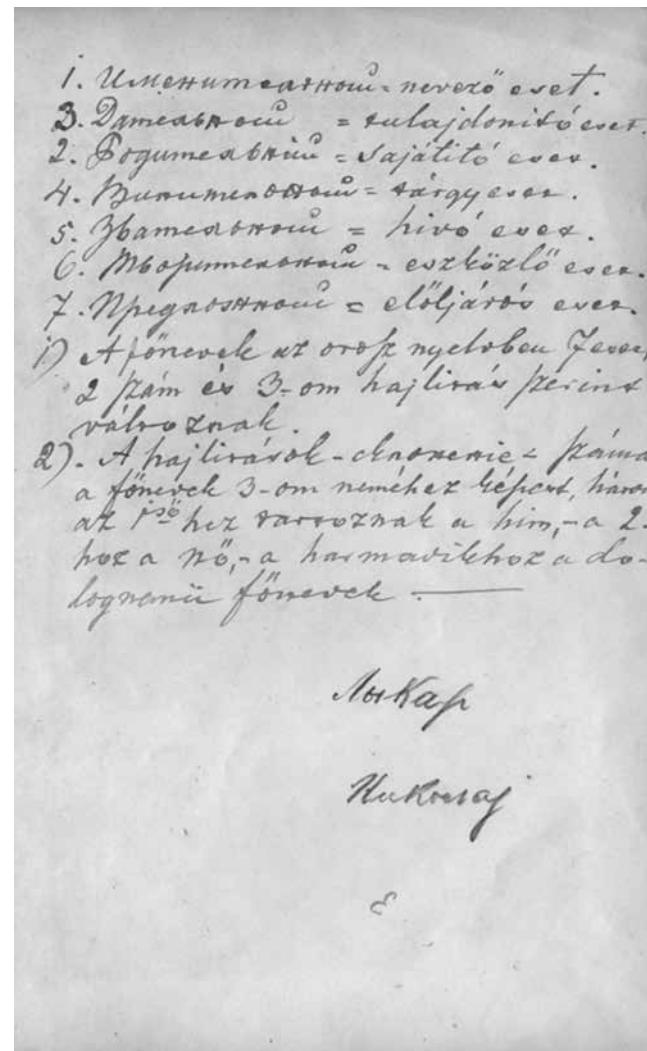 1. Именительный = nevező eset.
3. Дательный = tulajdonító eset.
2. Родительный = Sajátító eset.
4. Винительный = tárgy eset.
5. Звательный = hivó eset.
6. Творительный = eszközlő eset.
7. Предложный = előljárós eset.
1) A főnevek az orosz nyelvben 7 eset,
2 szám és 3-om hajlitás szerint
változnak.
2). A hajlitások - склонение = száma
a főnevek 3-om neméhez képest, három
az 1ső hez tartoznak a him,- a 2.
hoz a nő,- a harmadikhoz a do-
lognemü főnevek. —